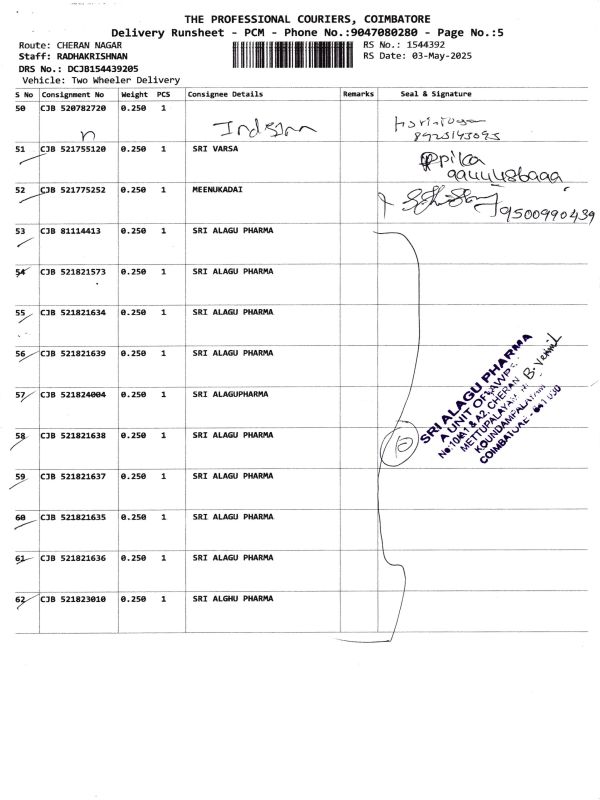 THE PROFESSIONAL COURIERS, COIMBATORE
Delivery Runsheet - PCM - Phone No.:9047080280 - Page No.:5
Route: CHERAN NAGAR
Staff: RADHAKRISHNAN
DRS No.: DCJB154439205
Vehicle: Two Wheeler Delivery
RS No.: 1544392
RS Date: 03-May-2025
S No Consignment No Weight PCS Consignee Details Remarks Seal & Signature
50 CJB 520782720 0.250 1
51 CJB 521755120 0.250 1 SRI VARSA
52 CJB 521775252 0.250 1 MEENUKADAI 9500990439
53 CJB 81114413 0.250 1 SRI ALAGU PHARMA
54 CJB 521821573 0.250 1 SRI ALAGU PHARMA
55 CJB 521821634 0.250 1 SRI ALAGU PHARMA
56 CJB 521821639 0.250 1 SRI ALAGU PHARMA
57 CJB 521824004 0.250 1 SRI ALAGUPHARMA
58 CJB 521821638 0.250 1 SRI ALAGU PHARMA
59 CJB 521821637 0.250 1 SRI ALAGU PHARMA
60 CJB 521821635 0.250 1 SRI ALAGU PHARMA
61 CJB 521821636 0.250 1 SRI ALAGU PHARMA
62 CJB 521823010 0.250 1 SRI ALGHU PHARMA
10
SRI ALAGU PHARMA
A UNIT OF
CHERAN
METTUPALAYAM
COIMBATORE - 641 030